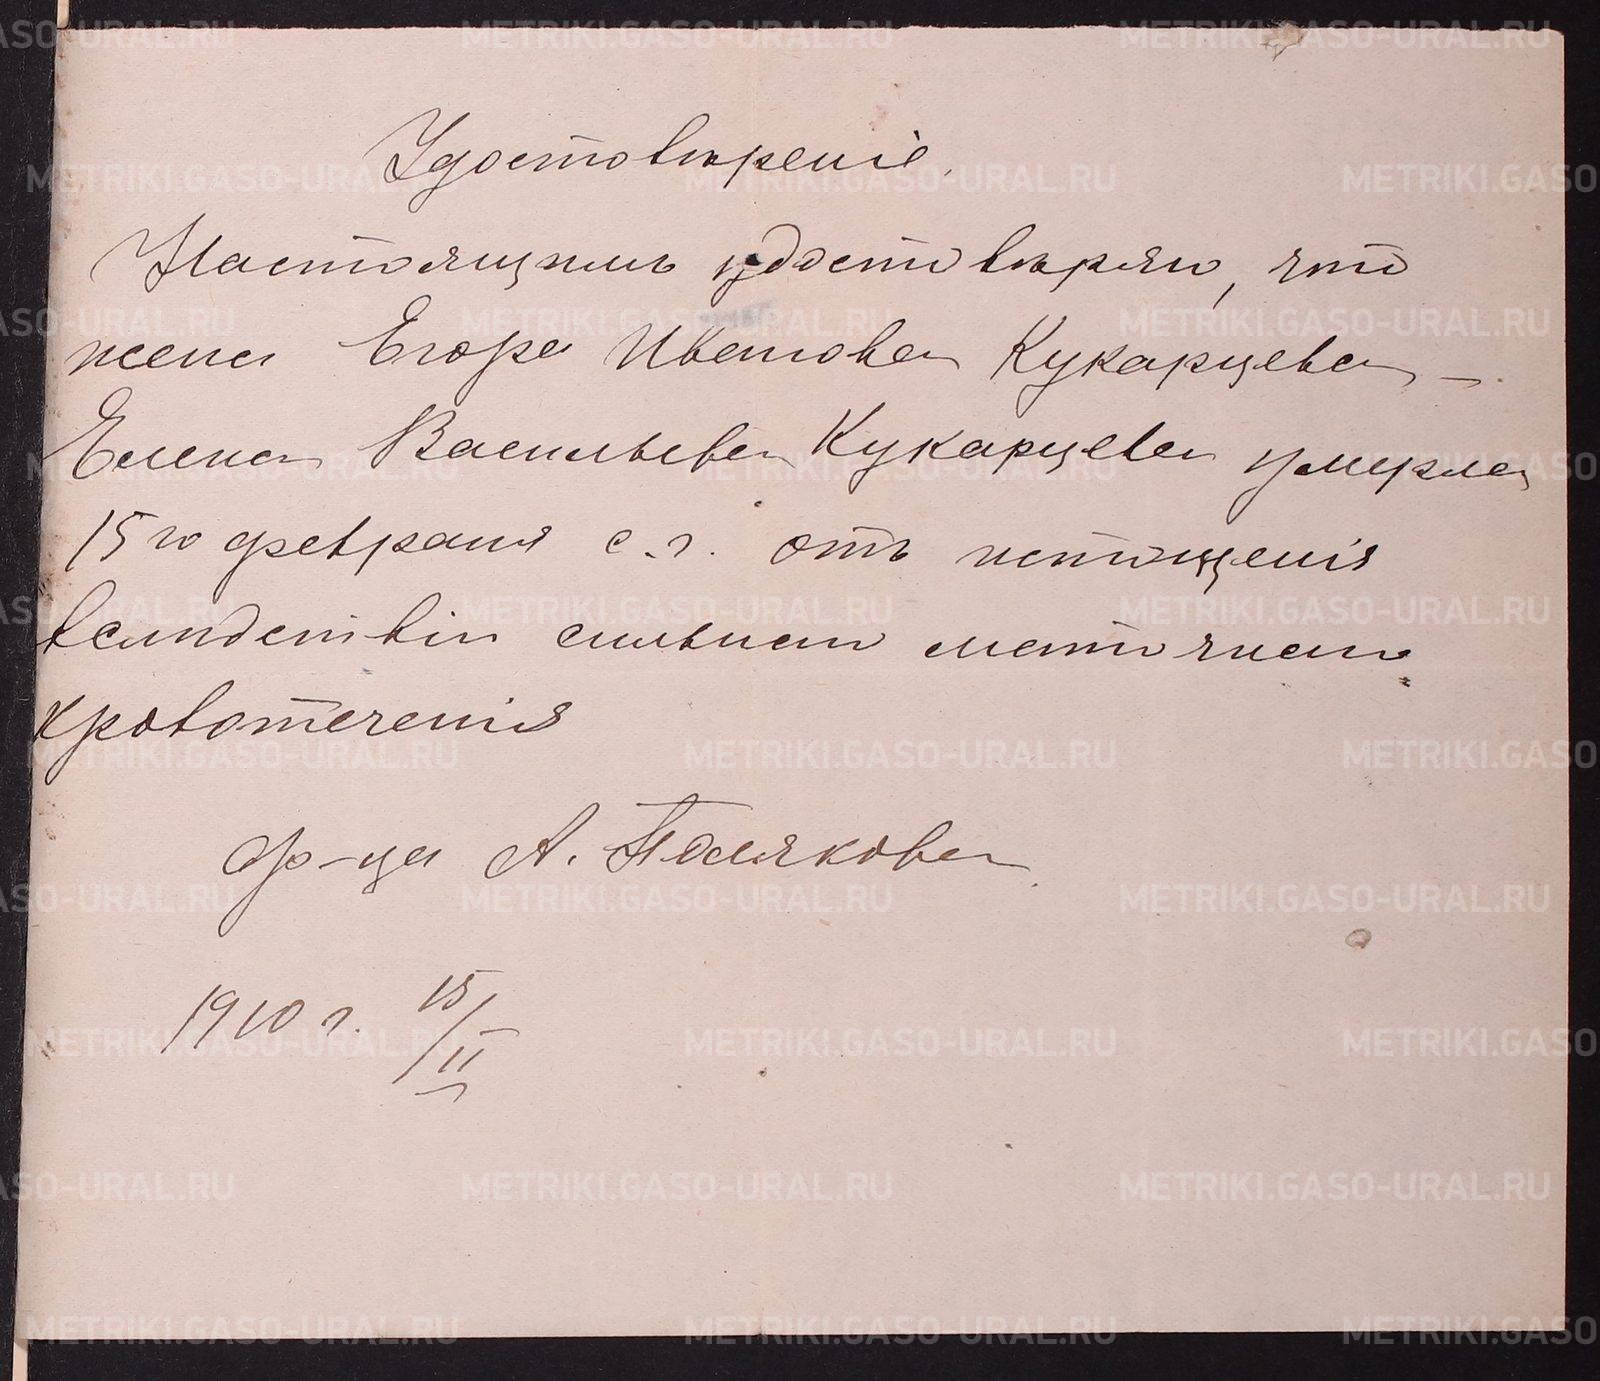 Удостовѣреніе.
Настоящимъ удостовѣряю, что
жена Егора Иванова Кукарцева –
Елена Васильева Кукарцева умерла
15го февраля с.г. отъ истощенія
вслѣдствіи сильнаго маточнаго
кровотеченія
Ф-ца А. Полякова
1910 г. 15/II